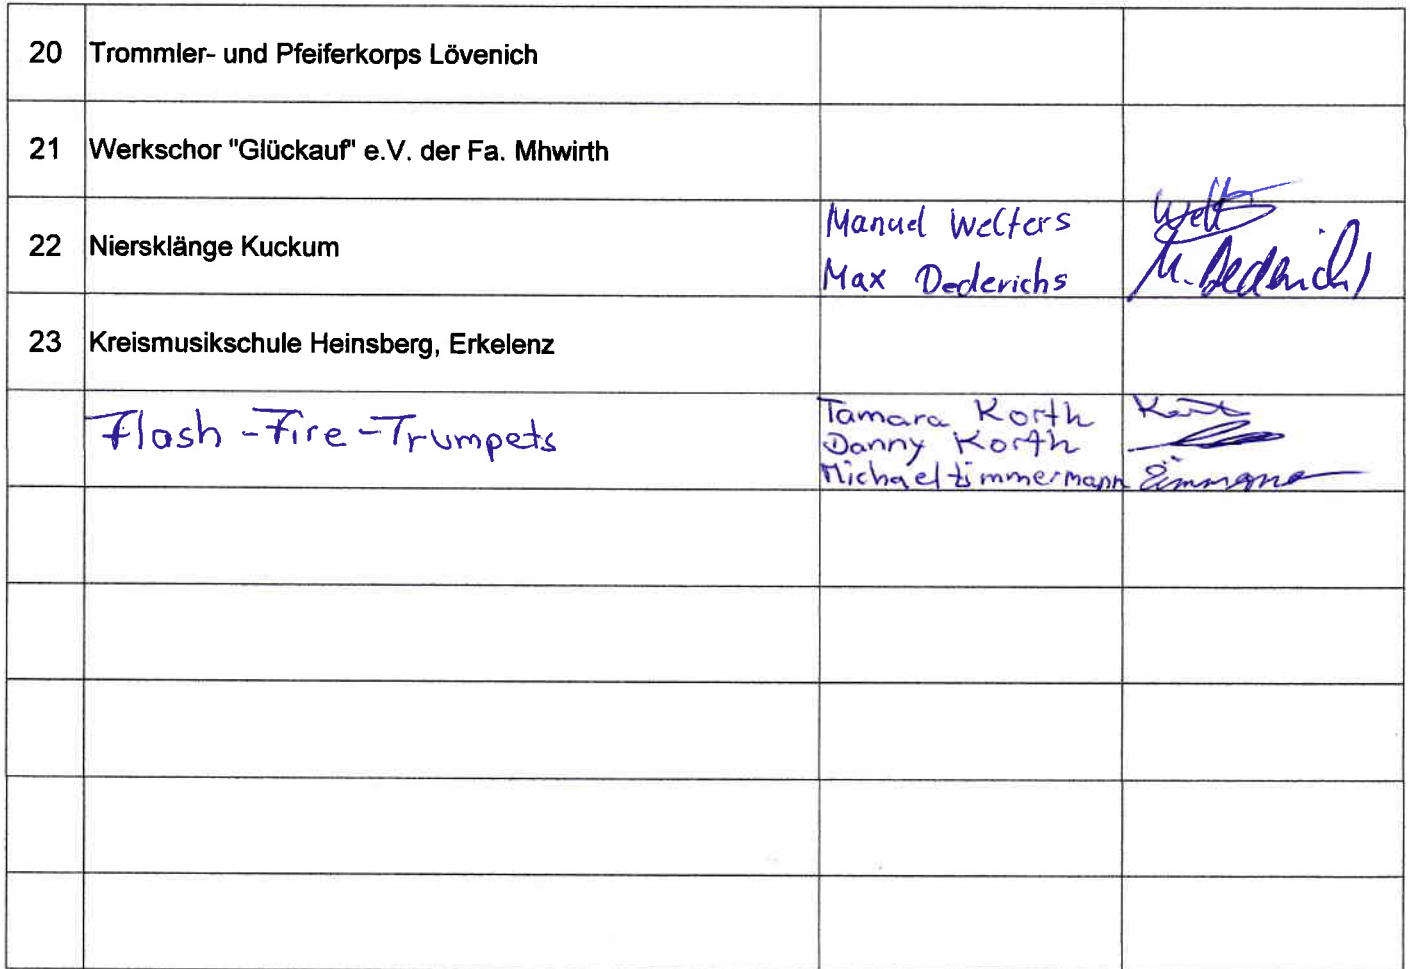 20 Trommler- und Pfeiferkorps Lövenich
21 Werkschor "Glückauf" e.V. der Fa. Mhwirth
22 Niersklänge Kuckum
Manuel Welters
Max Dederichs
M. Dederichs
23 Kreismusikschule Heinsberg, Erkelenz
Flash-Fire-Trumpets
Tamara Korth
Danny Korth
Michael Zimmermann